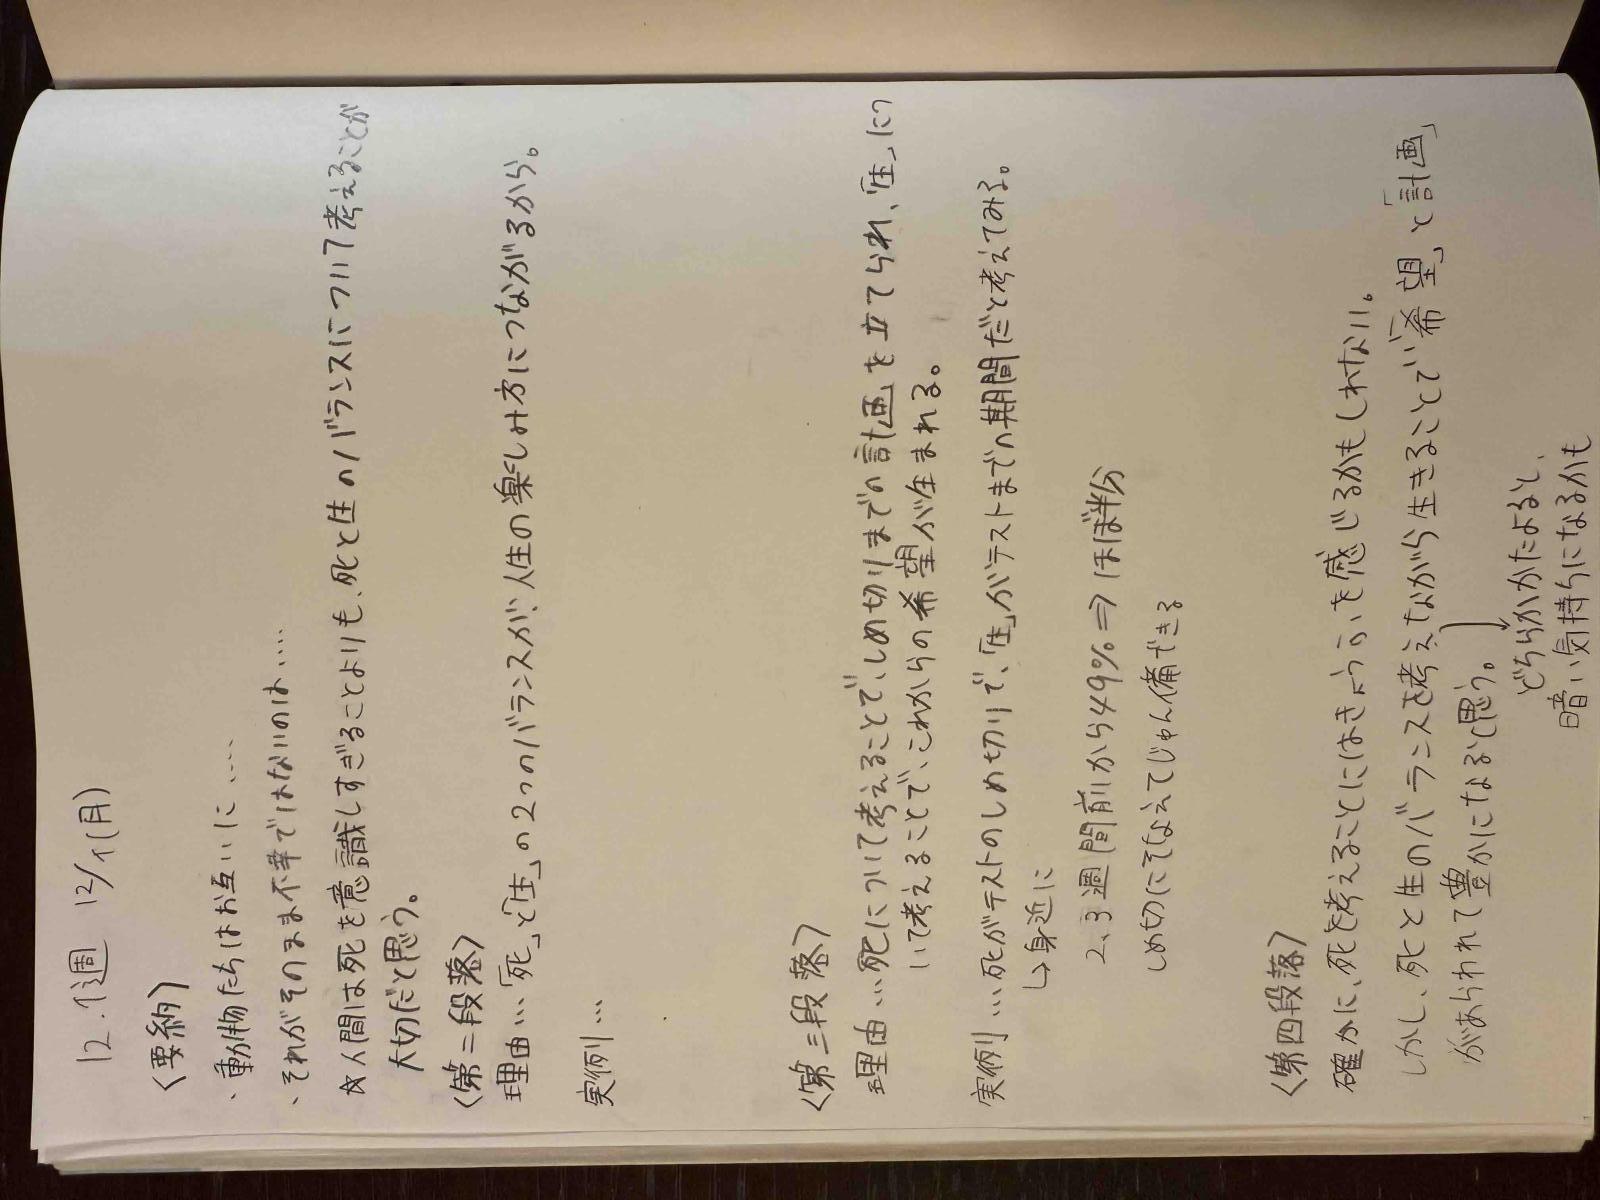 12.1週 12/1(月)
〈要約〉
・動物たちはお互いに....
・それがそのまま不幸ではないのは....
☆人間は死を意識しすぎることよりも、死と生のバランスについて考えることが
大切だと思う。
〈第二段落〉
理由…「死」と「生」の2つのバランスが、人生の楽しみ方につながるから。
実例…
〈第三段落〉
理由…死について考えることで、しめ切りまでの計画を立てられ、「生」につ
いて考えることで、これからの希望が生まれる。
実例…死がテストのしめ切りで、「生」がテストまでの期間だと考えてみる。
↳身近に
2、3週間前から49%⇒ほぼ半分
しめ切にそなえてじゅん備できる
〈第四段落〉
確かに、死を考えることにはきょうふを感じるかもしれない。
しかし、死と生のバランスを考えながら生きることで「希望」と「計画」
があらわれて豊かになると思う。
どちらかかたよると、
暗い気持ちになるかも